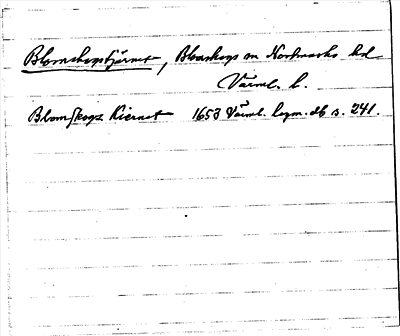 Blomskogstjärnet, Blomskogs sn Nordmarks hd
Värml. l.
Blomskogz Kiernet 1653 Värml. lagm. db s. 241.